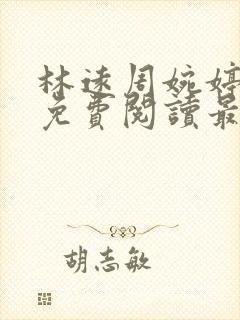 林遠周婉婷
免費閱讀最
胡志敏